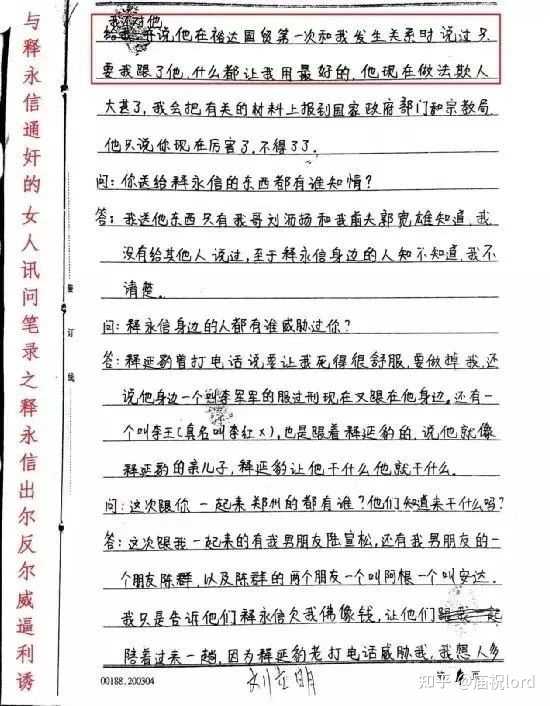 与释永信通奸的女人讯问笔录之释永信出尔反尔威逼利诱
说他在裕达国贸第一次和我发生关系时说过只
要我跟了他，什么都让我用最好的，他现在做法欺人
太甚了，我会把有关的材料上报到国家政府部门和宗教局，
他只说你现在厉害了，不得了了。
问：你送给释永信的东西都有谁知情？
答：我送他东西只有我哥刘沥扬和我前夫郭宽雄知道，我
没有给其他人说过，至于释永信身边的人知不知道，我不
清楚。
问：释永信身边的人都有谁威胁过你？
答：释延豹曾打电话说要让我死得很舒服，要做掉我，还
说他身边一个叫李军军的服过刑现在又跟在他身边。还有一
个叫李王（真名叫李红X），也是跟着释延豹的，说他就像
释延豹的亲儿子，释延豹让他干什么他就干什么。
问：这次跟你一起来郑州的都有谁？他们知道来干什么吗？
答：这次跟我一起来的有我男朋友陆宣松，还有我男朋友的一
个朋友陈群，以及陈群的两个朋友一个叫阿根一个叫安达，
我只是告诉他们释永信欠我佛像钱，让他们
陪着过来一趟，因为释延豹老打电话威胁我，我想人多
订
线
00188.200304
刘立明
第 页
知乎 @庙祝lord